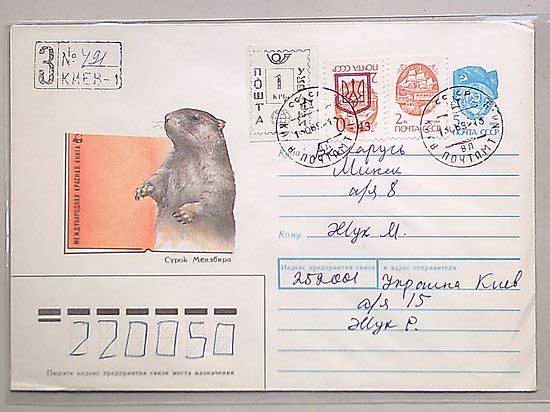 З № 491
КИЕВ-1
ПОШТА
1
КРБ
ПОЧТА СССР
0-43
2к
ПОЧТА СССР
5
ПОЧТА СССР
СССР
ПОЧТАМТ
СССР
ПОЧТАМТ
МЕЖДУНАРОДНАЯ КРАСНАЯ КНИГА
Сурок Мензбира
Куда Беларусь
Минск
а/я 8
Кому Жук М.
Индекс предприятия связи и адрес отправителя
252001 Украина Киев
а/я 15
Жук Р.
220050
Пишите индекс предприятия связи места назначения